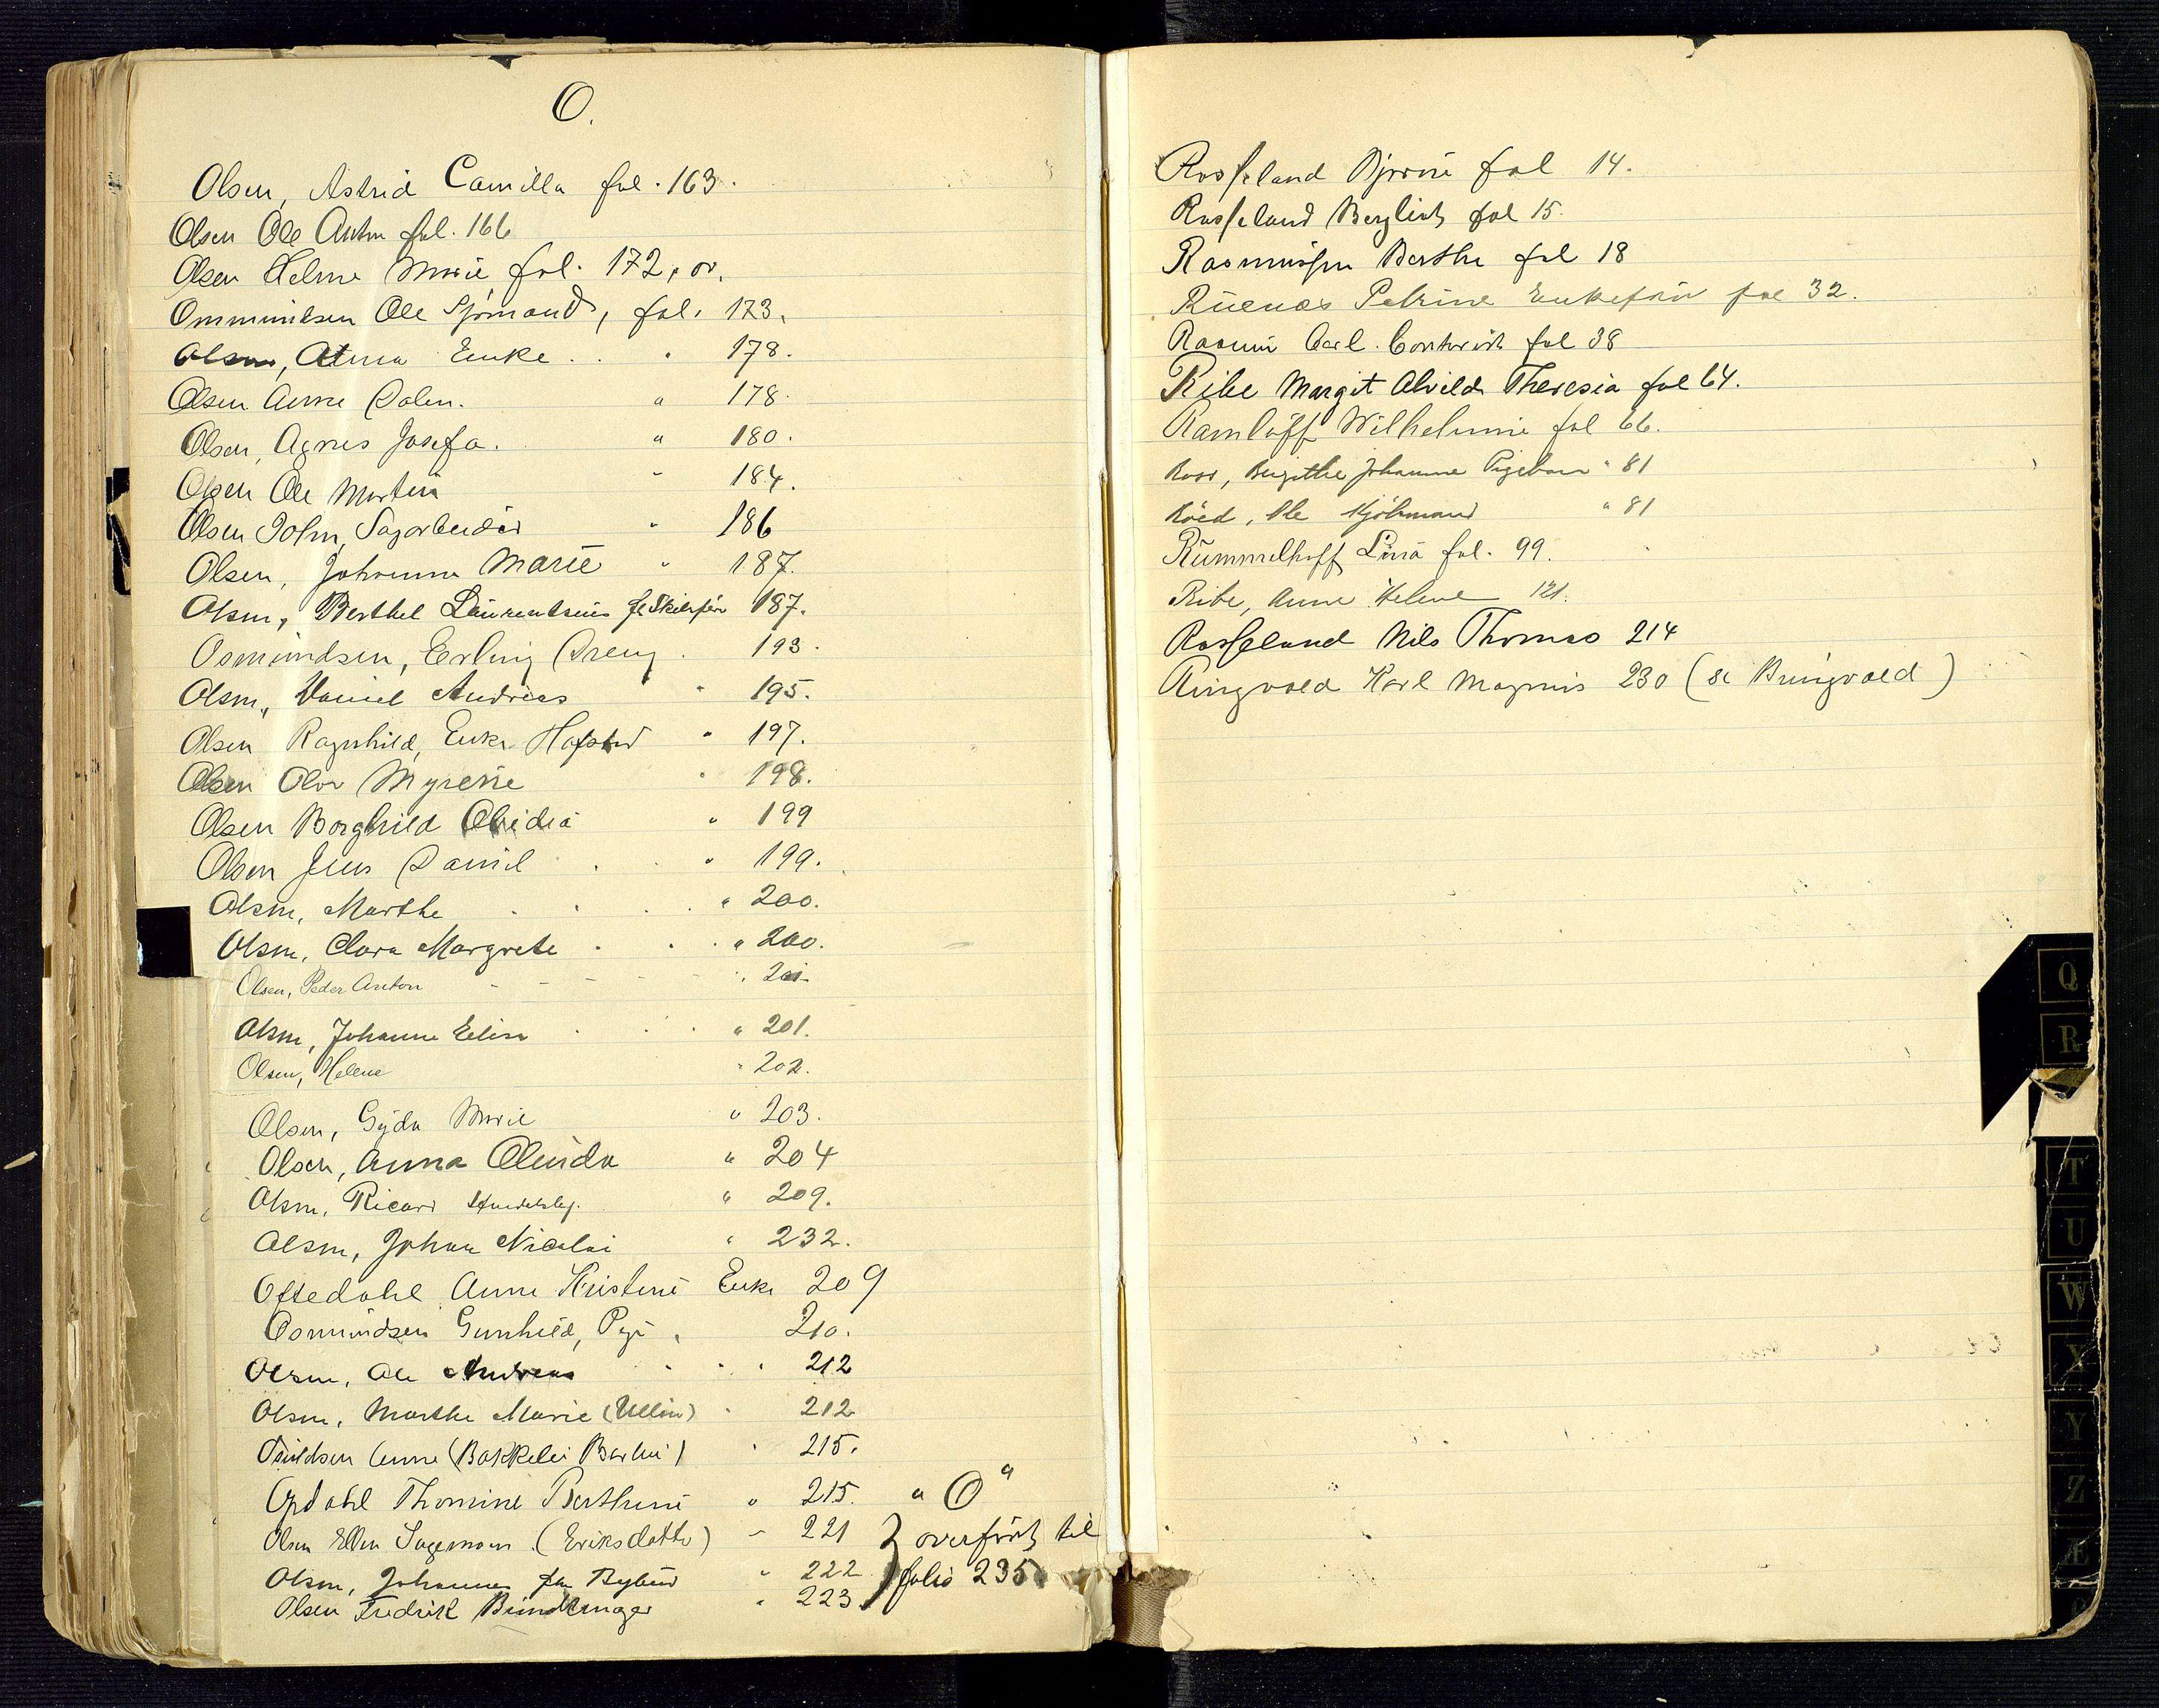 O.
Olsen, Astrid Camilla fol. 163.
Olsen Ole Anton fol. 166
Olsen Helene Marie fol. 172, ov.
Ommundsen Ole Sjömand, fol. 173.
Olsen, Anna Enke . . 178.
Olsen Anne Dalen. " 178.
Olsen, Agnes Josefa. " 180.
Olsen Ole Martin " 184.
Olsen John, Sagarbeider " 186
Olsen, Johanna Marie " 187.
Olsen, Berthel Laurentsius 187.
Osmundsen, Erling Dreng . 193.
Olsen, Daniel Andreas " 195.
Olsen Ragnhild, Enke " 197.
Olsen Olov Myrene " 198.
Olsen Borghild Olidia " 199
Olsen Jens Daniel . . " 199.
Olsen, Marthe . . . . " 200.
Olsen, Clara Margrete . . . " 200.
Olsen, Peder Anton - - - - " 201
Olsen, Johanne Elise . . . " 201.
Olsen, Helene " 202.
Olsen, Gyda Marie " 203.
Olsen, Anna Olinda " 204
Olsen, Ricard " 209.
Olsen, Johan Nicolai " 232.
Oftedahl Anne Kristine Enke 209
Osmundsen Gunhild, Pige . 210.
Olsen, Ole Andreas . . . 212
Olsen, Marthe Marie (Ullin) . 212
Anne (Bakkelei ) . 215.
Opdahl Thomine Berthine " 215. " O "
Olsen Ellen Sagemoen (Eriksdatter) " 221 } overfört til
Olsen, Johannes fra " 222 } folio 235
Olsen Fredrik Bundtmager " 223. }
Rosseland Bjarne fol 14.
Rosseland Bergliot fol 15.
Rasmussen Berthe fol 18
Petrine Enkefru fol 32.
Carl fol 38
Ribe Margit Alvilde Theresia fol 64.
Ramlöff Wilhelmine fol 66.
Roos, Birgitte Johanne Pigebarn " 81
Röed, Ole Kjöbmand " 81
Rummelhoff Lina fol. 99.
Ribe, Anne Helene 121.
Rosseland Nils Thomas 214
Ringvold Karl Magnus 230 (se Bringvold)
Q
R
T
U
W
X
Y
Z
Æ